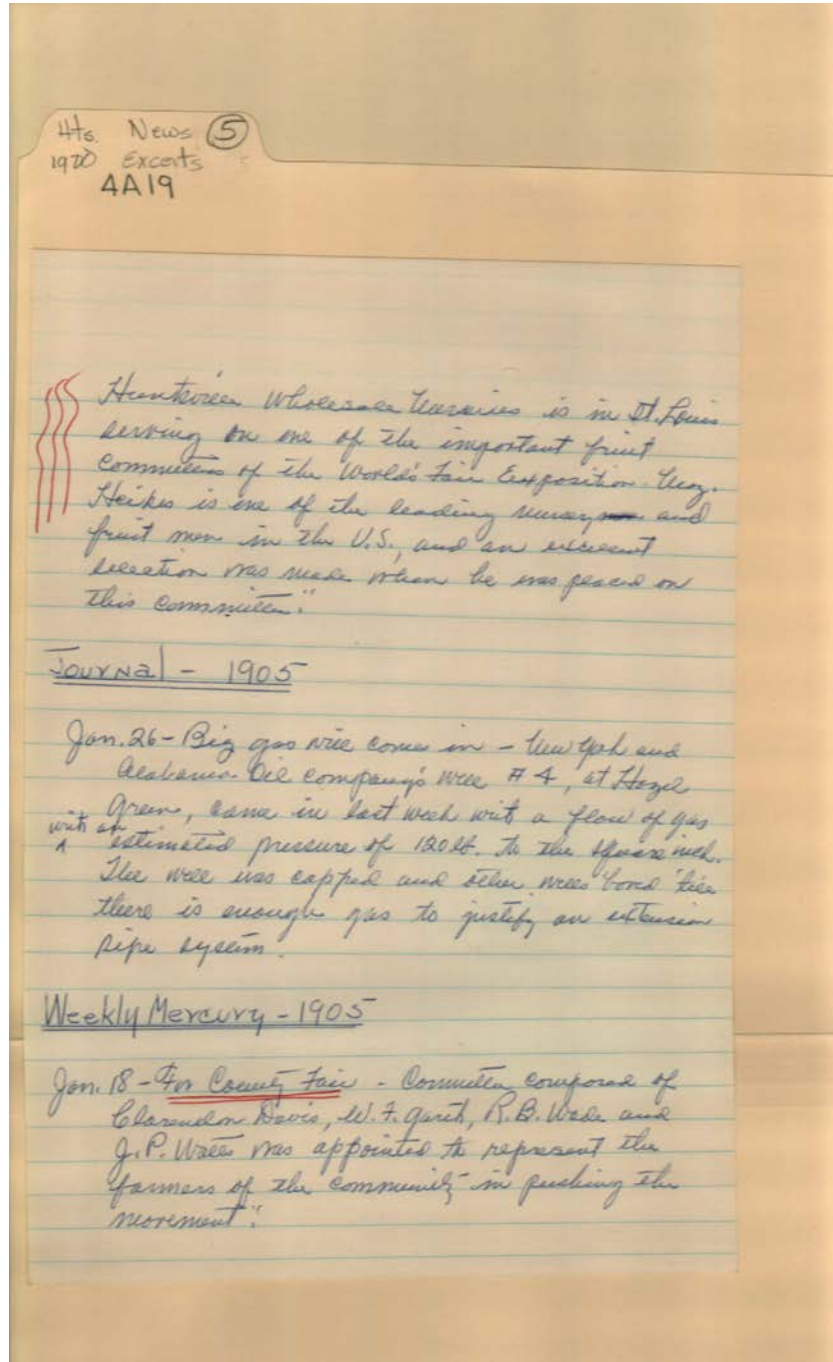 Hts. News 5
1900 Excerts
4A19
Huntsville Wholesale Nurseries is in St. Louis
serving on one of the important fruit
committees of the World's Fair Exposition.
Heikes is one of the leading nursery and
fruit men in the U.S., and an excellent
selection was made when he was placed on
this committee."
Journal - 1905
Jan. 26 - Big gas well comes in - New York and
Alabama Oil company's well # 4, at Hazel
Green, came in last week with a flow of gas
with an estimated pressure of 120 lb. to the square inch.
The well was capped and other wells bored till
there is enough gas to justify an extension
pipe system.
Weekly Mercury - 1905
Jan. 18 - For County Fair - Committee composed of
Clarendon Davis, W. F. Garth, R. B. Wade and
J. P. Watts was appointed to represent the
farmers of the community in pushing the
movement."